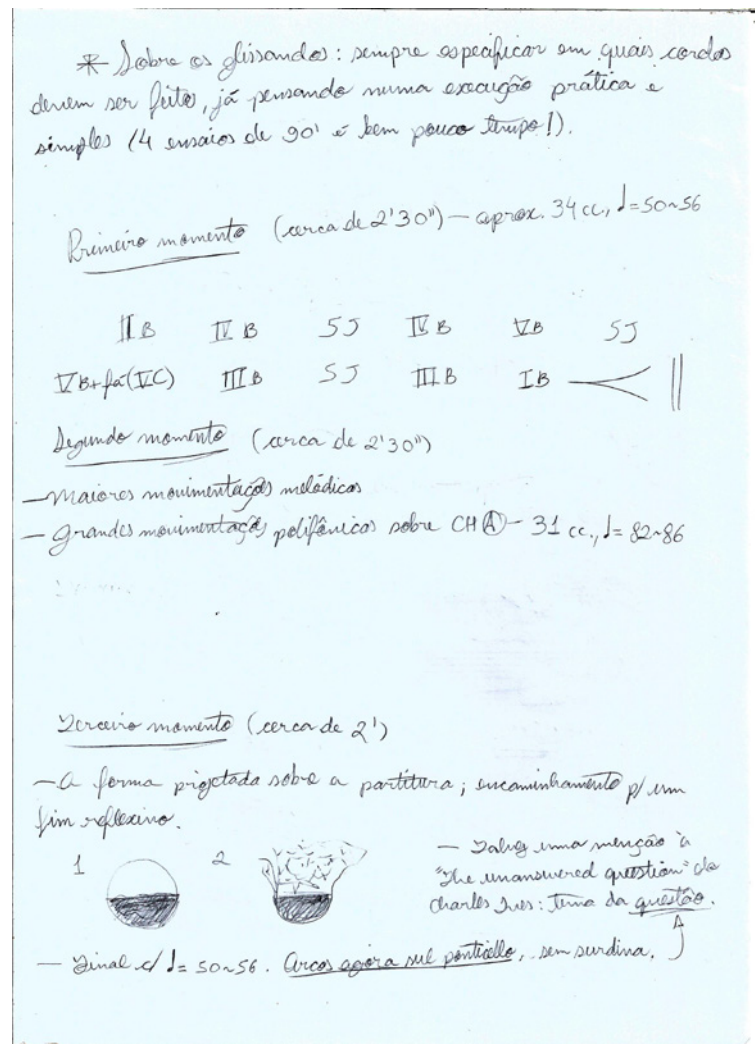 * Sobre os glissandos: sempre especificar em quais cordas
devem ser feitos, já pensando numa execução prática e
simples (4 ensaios de 90' é bem pouco tempo!).
Primeiro momento (cerca de 2'30") — aprox. 34 cc., ♩=50~56
II B IV B SJ IV B V B SJ
V B+fá(VC) III B SJ III B I B
Segundo momento (cerca de 2'30")
— Maiores movimentações melódicas
— Grandes movimentações polifônicas sobre CH A — 31 cc., ♩=82~86
Terceiro momento (cerca de 2')
— A forma projetada sobre a partitura; encaminhamento p/ um
fim reflexivo.
1 2
— Talvez uma menção à
"The unanswered question" de
Charles Ives: tema da questão.
— Final c/ ♩=50~56. Arcos agora sul ponticello, sem surdina.